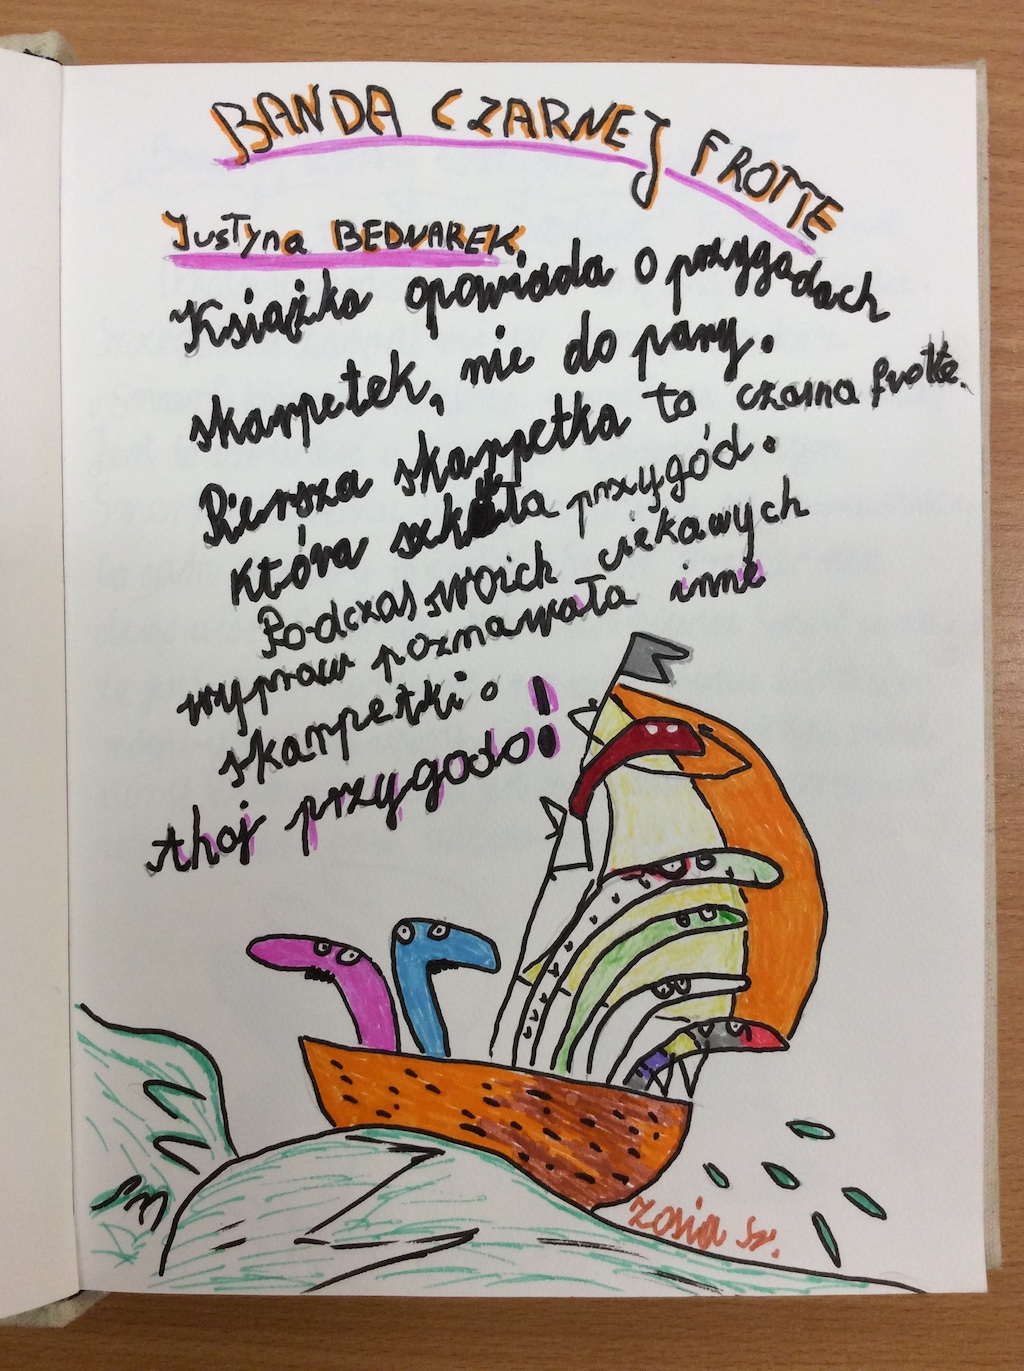 BANDA CZARNEJ FROTTE
Justyna BEDNAREK
Książka opowiada o przygadach
skarpetek, nie do pary.
Pierwsza skarpetka to czarna frotte.
która szkała przygód.
Podczas swoich ciekawych
wypraw poznawała inne
skarpetki.
Ahoj przygodo!
Zosia Sz.